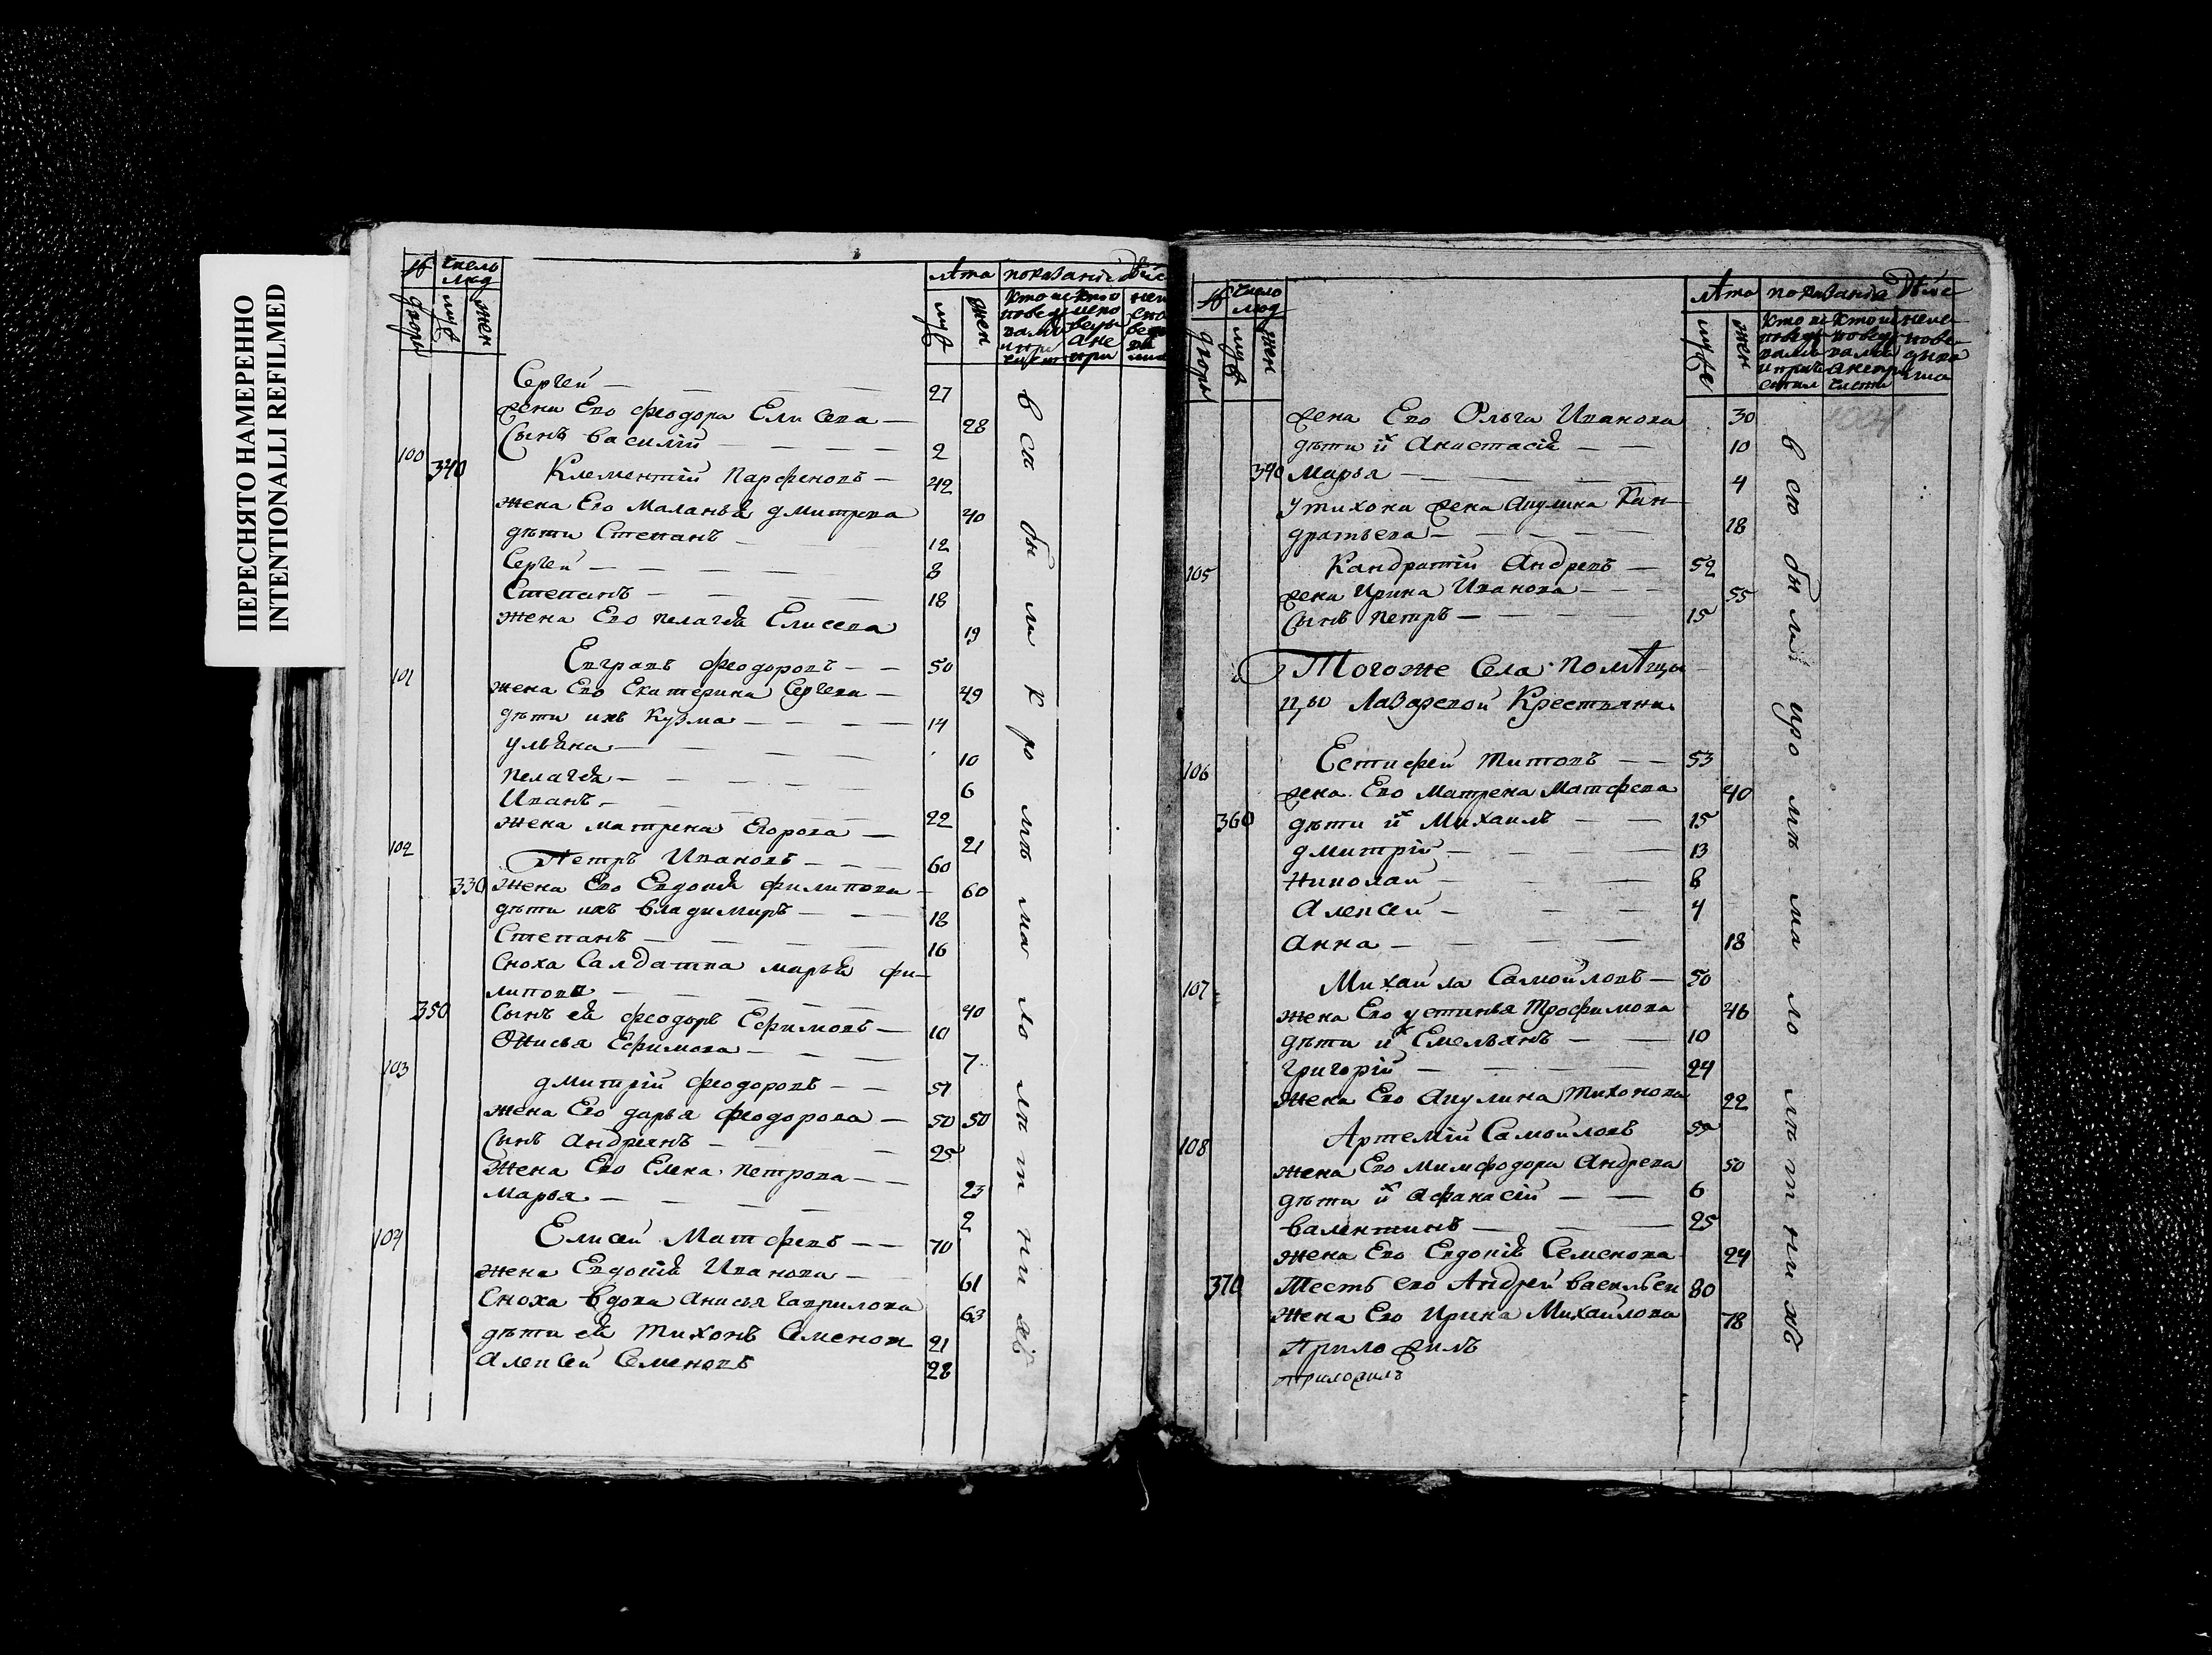 ПЕРЕСНЯТО НАМЕРЕННО
INTENTIONALLI REFILMED
№ число люд лѣта показаніе дѣйс
дворы муж жен муж жен
Сергей — 27
жена Его Феодора Елисева — 28
Сынъ Василій — 2
100 340 Клементій Парфеновъ — 42
жена Его Маланья Дмитрева 40
дѣти Степанъ 12
Сергей — 8
Степанъ — 18
жена Его Пелагѣя Елисева 19
101 Евграпъ Феодоровъ — 50
жена Его Екатерина Сергева — 49
дѣти ихъ Кузма — 14
Ульяна — 10
Пелагѣя — 6
Иванъ — 22
жена Матрена Егорова — 21
102 Петръ Ивановъ — 60
330 жена Его Евдокія Филипова — 60
дѣти ихъ Владимиръ — 18
Степанъ — 16
Сноха Салдатка Марья Фи-
липова — 40
350 Сынъ ея Феодоръ Ефимовъ — 10
Онисья Ефимова — 7
103 Дмитрій Феодоровъ — 51
жена Его Дарья Феодорова — 50 50
Сынъ Андреянъ — 25
жена Его Елена Петрова — 23
Марья — 2
104 Елисей Матфевъ — 70
жена Евдокія Иванова — 61
Сноха вдова Анисья Гаврилова 63
дѣти ея Тихонъ Семенов 21
Алексей Семеновъ 28
в си бы ли к ро мѣ ма ло лѣ т ни хъ
№ число люд лѣта показанія дѣйс
дворы муж жен муже жен
1004
жена Его Ольга Иванова 30
дѣти их Анастасія — 10
340 Марья — 4
у Тихона жена Акулина Кан-
дратьева — 18
105 Кандратій Андревъ — 52
жена Ирина Иванова — 55
Сынъ Петръ — 15
Тогоже Села помѣщи
цы Лазаревой Крестьяни
106 Естифей Титовъ — 53
жена Его Матрена Матфева 40
360 дѣти их Михаилъ — 15
Дмитрій — 13
Николай — 8
Алексей — 4
Анна — 18
107 Михайла Самойловъ — 50
жена Его Устинья Трофимова 46
дѣти их Емельянъ — 10
Григорій — 24
жена Его Акулина Тихонова 22
108 Артемій Самойловъ 59
жена Его Мимфодора Андрева 50
дѣти их Афанасій — 6
Валентинъ — 25
жена Его Евдокія Семенова 24
370 Тесть его Андрей Васильев 80
жена Его Ирина Михайлова 78
Приложилъ
приложилъ
в сю бы ли кро мѣ ма ло лѣ т ни хъ